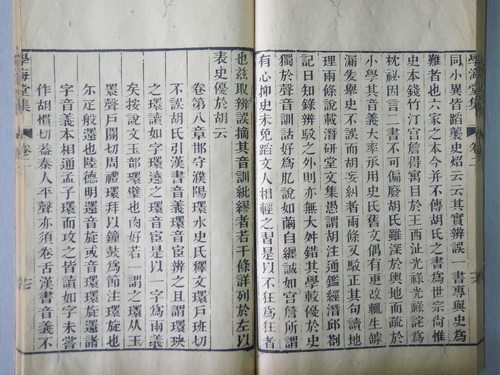 同小異皆蹈襲史炤云云其實辨誤一書專與史為
難者也六家之本今幷不傳胡氏之書為世宗尙惟
史本錢竹汀宮詹得寓目於王西沚光祿光祿詫為
枕祕因言二書不可偏廢胡氏雖深於輿地而疏於
小學其音義大率承用史氏舊文偶有更改輒生罅
漏爰舉史不誤而胡妄糾者兩條又駁正其句讀地
理兩條說載潛研堂文集愚謂胡注通鑑經潛邱劄
記日知錄辨駁之外則亦無大舛錯其學較優於史
獨於聲音訓詁好為肊說如繭自纒誠如宮詹所謂
有心抑史未免蹈文人相輕之習是以不狂為狂者
學海堂集
卷二
也茲取辨誤摘其音訓紕繆者若干條詳列於左以
表史優於胡云
卷第八章邯守濮陽環水史氏釋文環戶班切
不誤胡氏引漢書音義環音宦辨之且謂環
之環讀如字環遶之環音宦是以一字為兩義
矣按說文玉部環璧也肉好若一謂之環从玉
瞏聲戶關切周禮環拜以鐘鼓為節注環旋也
尓疋般還也陸德明還音旋或音環環旋
字音義本相通孟子環而攻之皆讀如字未嘗
作胡慣切葢秦人平聲亦須卷舌漢書音義不